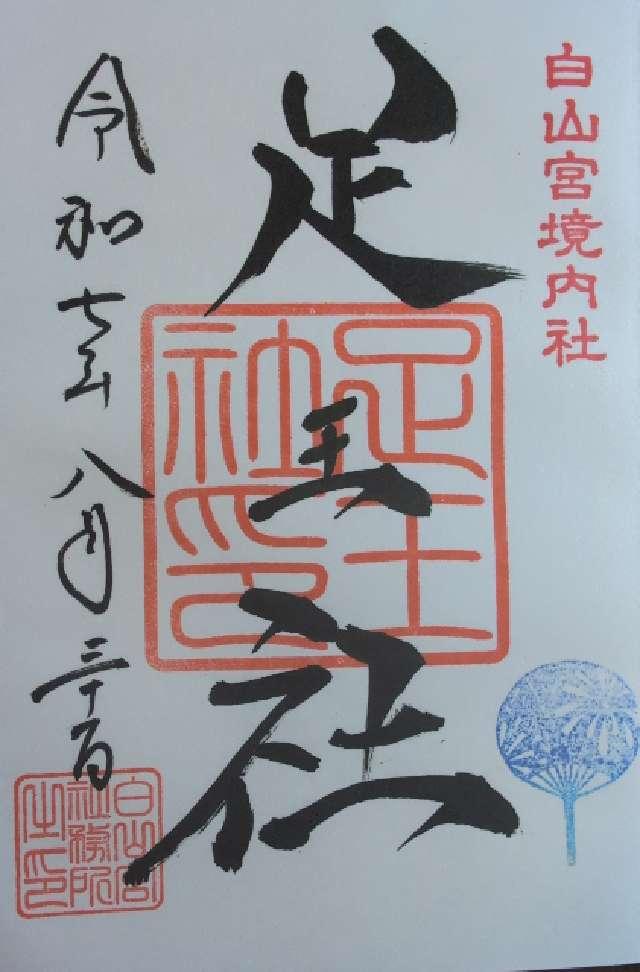 白山宮境内社
足王社
足王社印
令和七年八月三十日
白山宮社務所之印